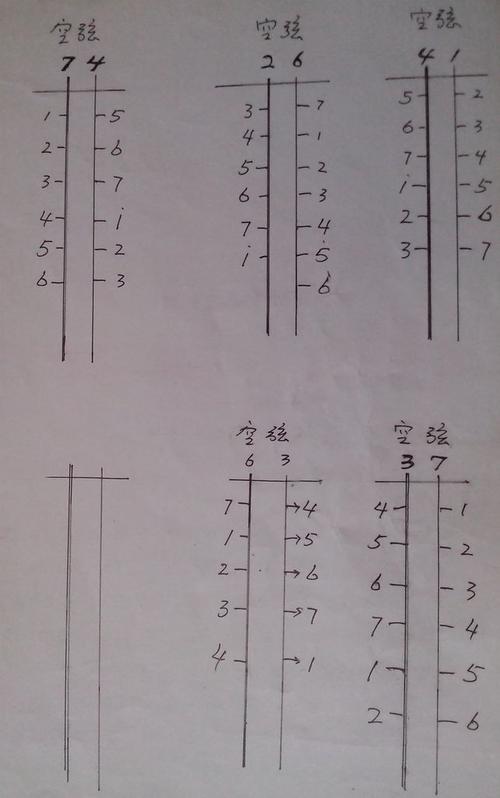 空弦
7 4
1 5
2 6
3 7
4 i
5 2
6 3
空弦
2 6
3 7
4 1
5 2
6 3
7 4
i 5
6
空弦
4 1
5 2
6 3
7 4
i 5
2 6
3 7
空弦
6 3
7 →4
1 →5
2 →6
3 →7
4 →1
空弦
3 7
4 1
5 2
6 3
7 4
1 5
2 6